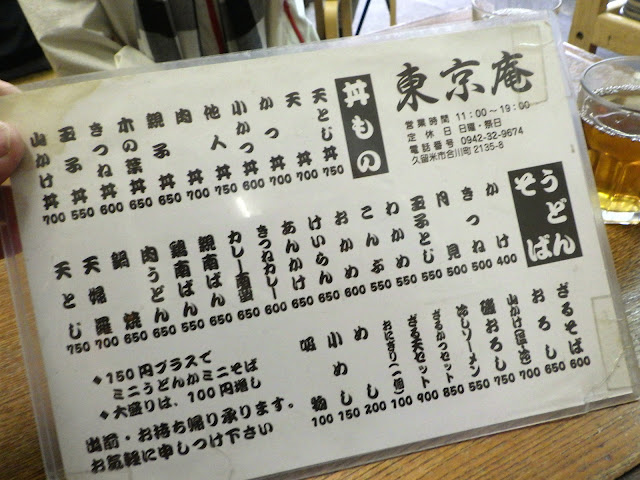 東京庵
営業時間 11:00～19:00
定休日 日曜・祭日
電話番号 0942-32-9674
久留米市合川町 2135-8
丼もの
天とじ丼 750
天丼 700
かつ丼 700
小かつ丼 700
他人丼 750
肉丼 700
親子丼 650
木の葉丼 650
きつね丼 600
玉子丼 550
山かけ丼 700
うどん
そば
かけ 400
きつね 500
月見 500
玉子とじ 550
わかめ 550
こんぶ 550
おかめ 600
けいらん 650
あんかけ 650
きつねカレー 650
カレー南蛮 650
親南ばん 650
鶏南ばん 550
肉うどん 650
鍋焼 650
天婦羅 700
天とじ 750
ざるそば 600
おろし 650
山かけ 700
磯おろし 750
冷しソーメン 550
ざるかつセット 850
ざる天セット 900
おにぎり(一個) 100
めし 200
小めし 150
吸物 100
◆150円プラスで
ミニうどんかミニそば
◆大盛りは、100円増し
出前・お持ち帰り承ります。
お気軽に申しつけ下さい